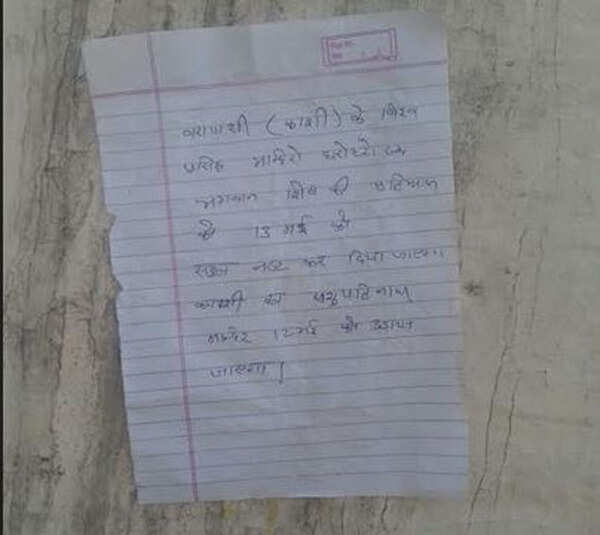 वाराणसी (काशी) के विश्व
प्रसिद्ध मन्दिरो धरोहरो एवं
भगवान शिव की प्रतिमाओ
को 13 मई को
कर दिया जाएगा
काशी का पशुपतिनाथ
मन्दिर 12 मई को उड़ाया
जाएगा।